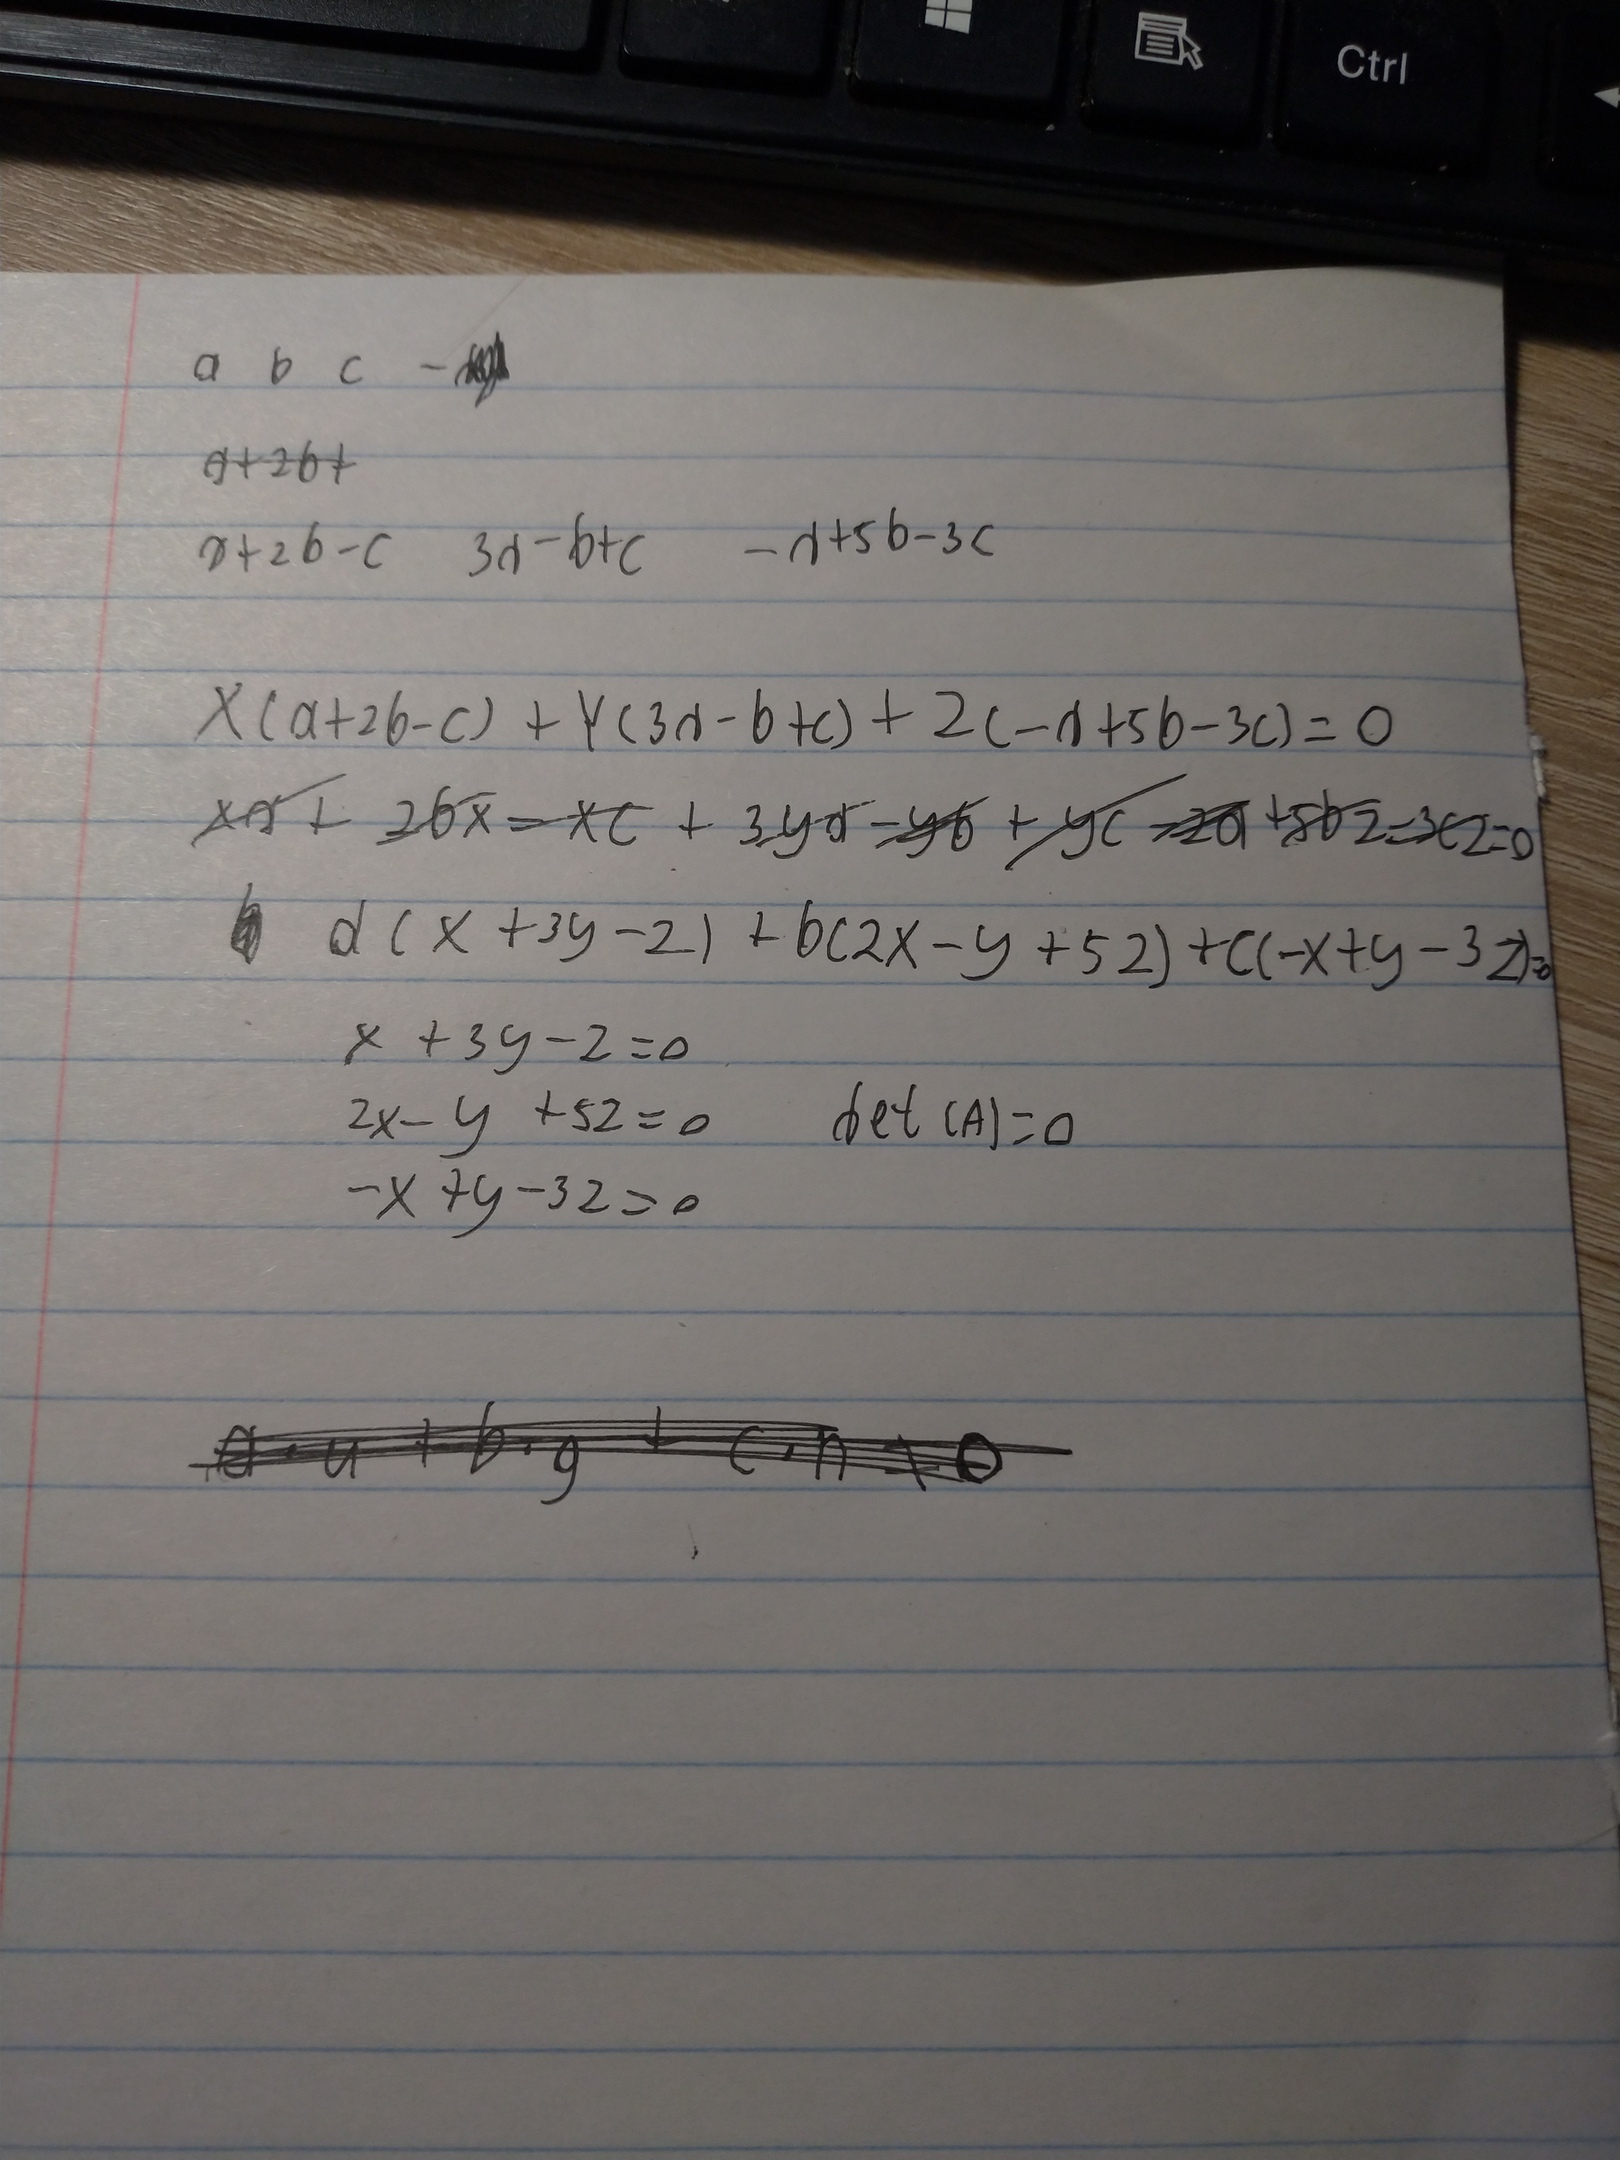 Ctrl
a b c -
a+2b+
a+2b-c 3a-b+c -a+5b-3c
X(a+2b-c) + Y(3a-b+c) + Z(-a+5b-3c)=0
xa + 2bx - xc + 3ya - yb + yc - za +5bz-3cz=0
a(x+3y-z) + b(2x-y+5z)+c(-x+y-3z)=0
x+3y-z=0
2x-y+5z=0 det(A)=0
-x+y-3z=0